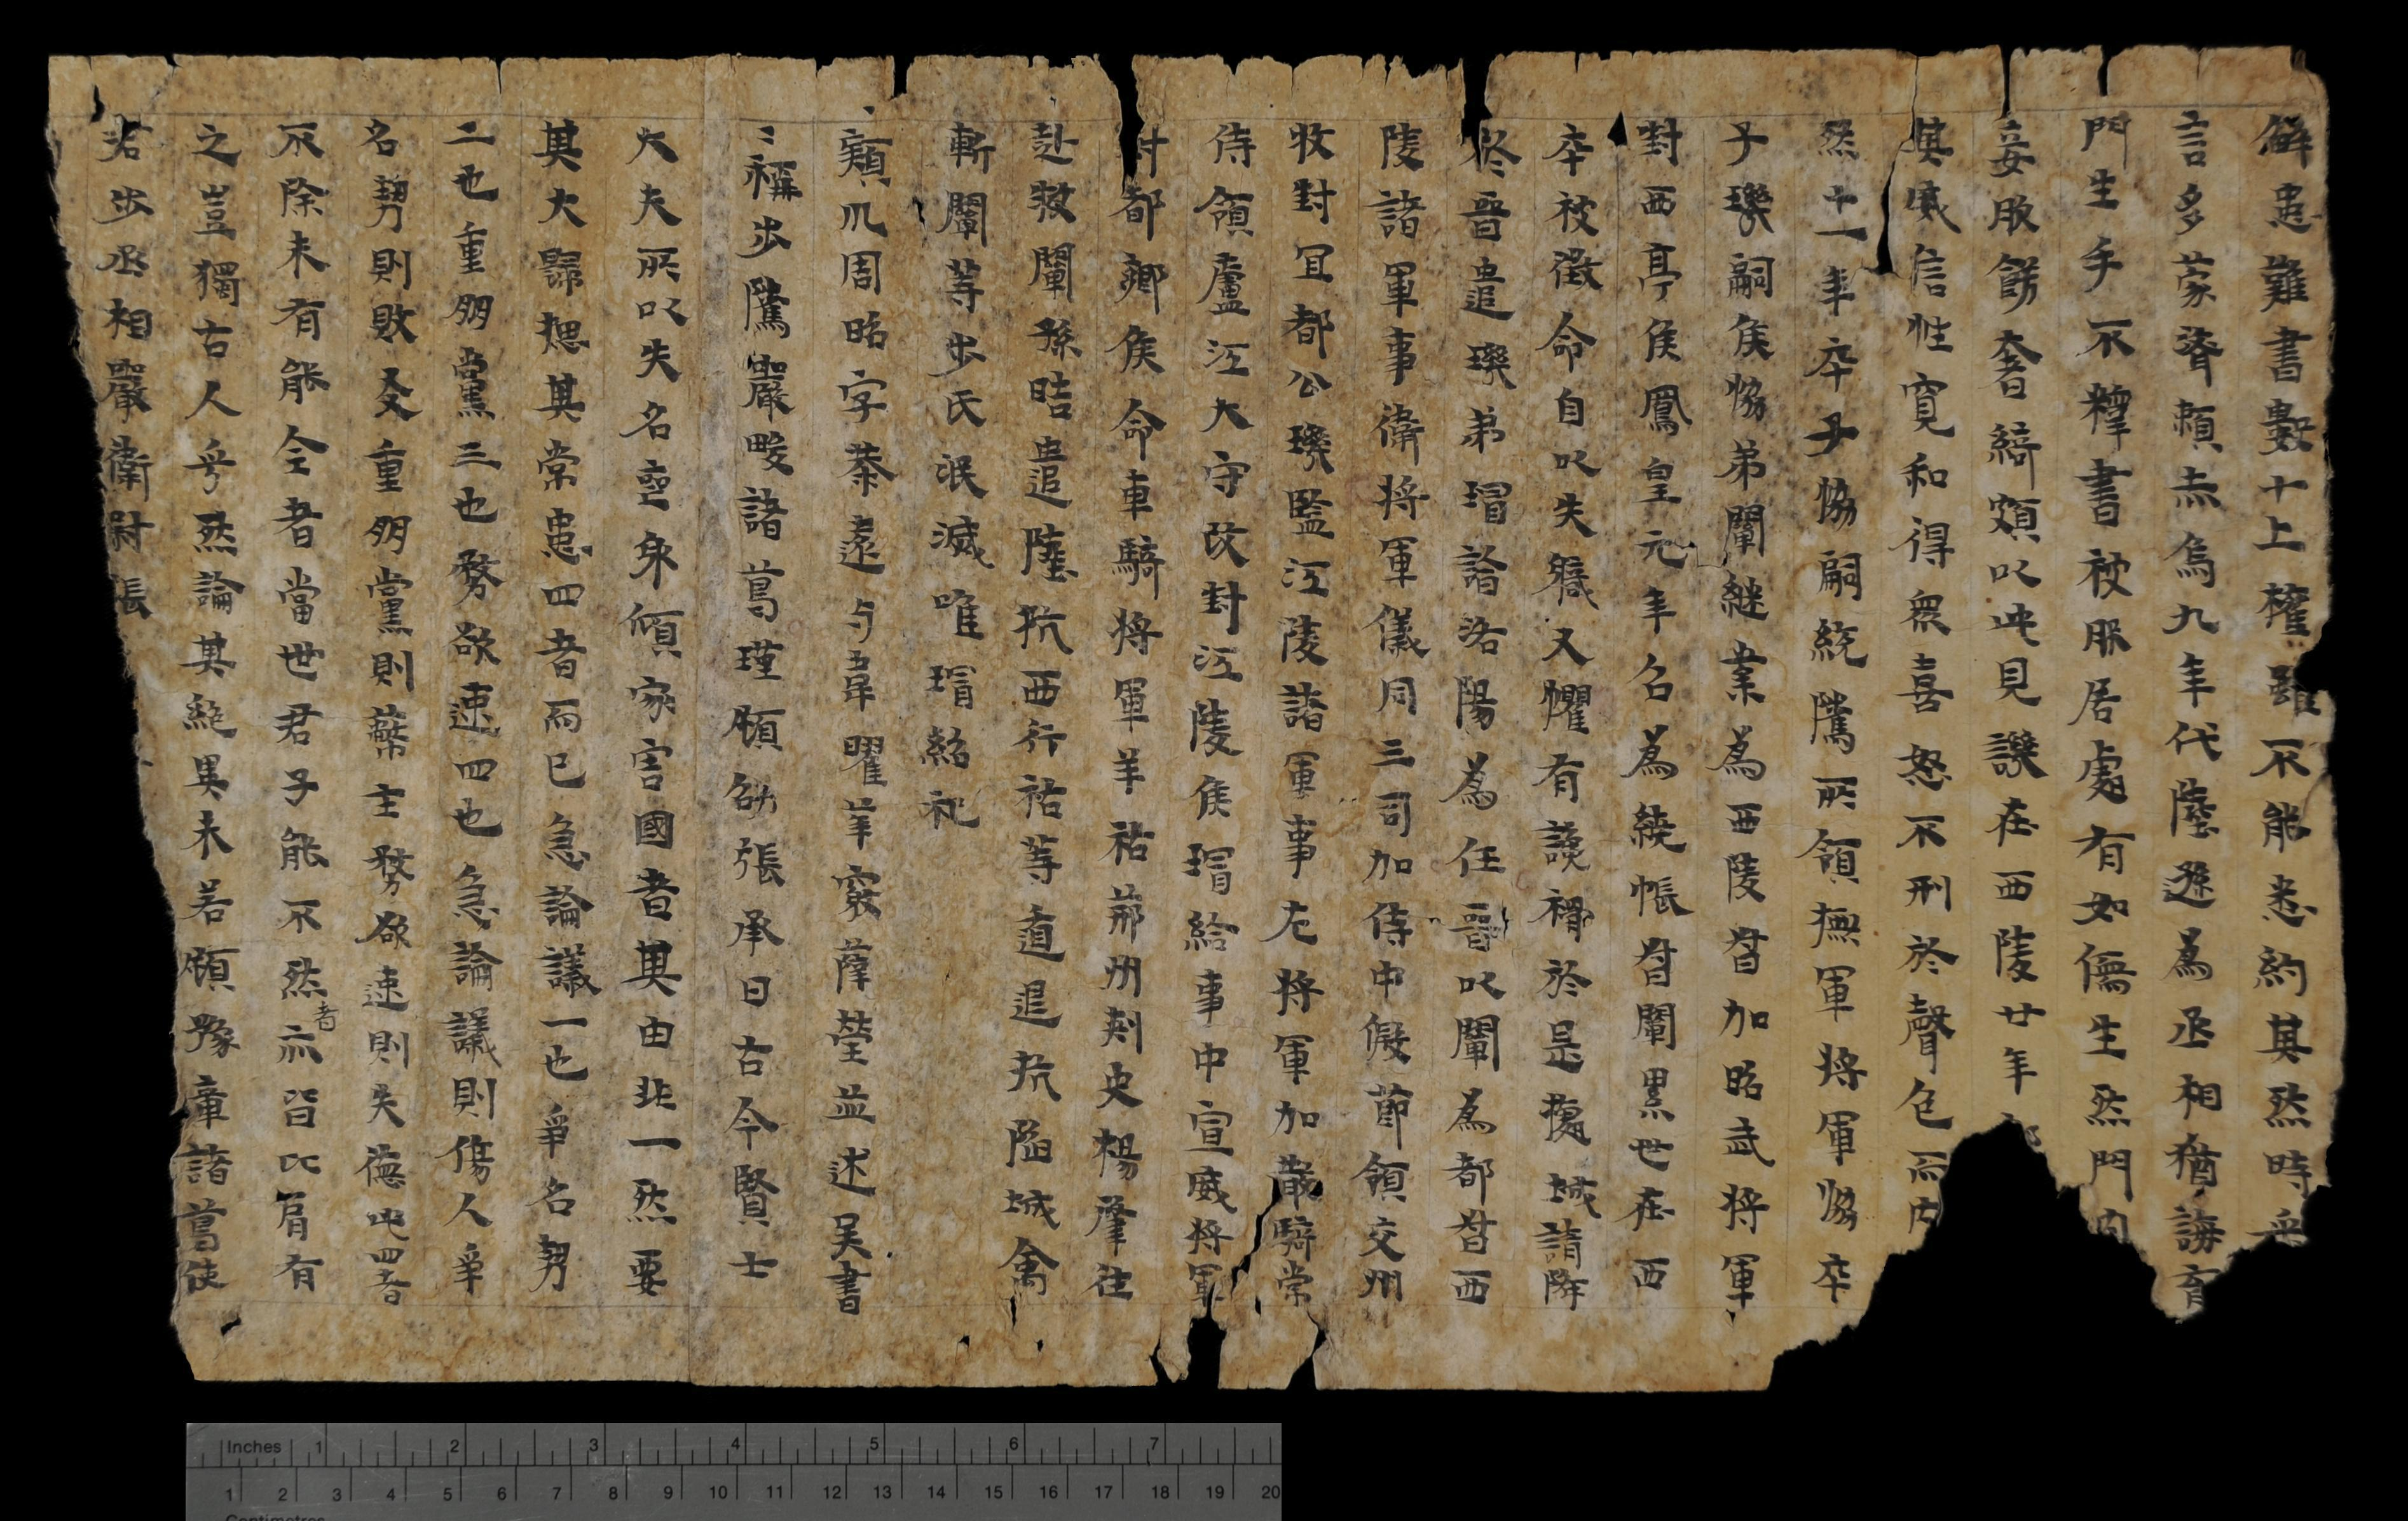 解患難書數十上權雖不能悉約其然時采
言多蒙濟賴赤烏九年代陸遜為丞相猶誨育
門生手不釋書被服居處有如儒生然門內
妾服餝奢綺頗以此見譏在西陵廿年鄰
其威信性寬和得衆喜怒不形於聲色而内
然十一年卒子恊嗣統隲所領撫軍將軍恊卒
子璣嗣侯恊弟闡継業為西陵督加昭武將軍
封西亭侯鳳皇元年名為繞帳督闡累世在西
卒被徵命自以失職又懼有讒禍於是據城請降
於晉遣璣弟璿詣洛陽為任晉以闡為都督西
陵諸軍事衛將軍儀同三司加侍中假節領交州
牧封宜都公璣監江陵諸軍事左將軍加散騎常
侍領廬江大守改封江陵侯璿給事中宣威將軍
封都鄉侯命車騎將軍羊祜荊州刺史楊肇往
赴救闡孫晧遣陸抗西行祜等遁退抗陷城禽
斬闡等步氏泯滅唯璿紹祀
潁川周昭字恭遠与韋曜羊窽薩瑩並述吴書
〻稱步隲嚴畯諸葛瑾顧劭張承曰古今賢士
大夫所以失名喪身傾家害國者其由非一然要
其大歸揔其常患四者而已急論議一也爭名勢
二也重朋黨三也務欲速四也急論議則傷人爭
名勢則敗友重朋黨則蔽主務欲速則失德此四者
不除未有能全者當世君子能不然者亦皆比肩有
之豈獨古人乎然論其絶異未若顧豫章諸葛使
若步丞相嚴衛尉張